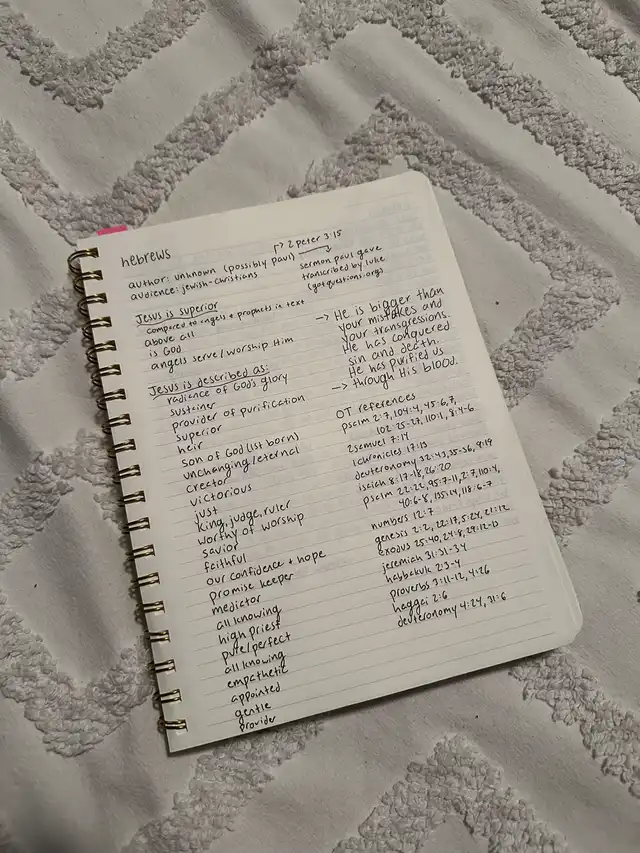 hebrews
author: unknown (possibly paul)
↱ 2 peter 3:15
audience: jewish-christians
sermon paul gave
transcribed by luke
(gotquestions.org)
Jesus is superior
compared to angels + prophets in text
above all
is God
angels serve/worship Him
Jesus is described as:
radiance of God's glory
sustainer
provider of purification
superior
heir
son of God (1st born)
unchanging/eternal
creator
victorious
just
king, judge, ruler
worthy of worship
savior
faithful
our confidence + hope
promise keeper
mediator
all knowing
high priest
pure/perfect
all knowing
empathetic
appointed
gentle
provider
→ He is bigger than
your mistakes and
your transgressions.
He has conquered
sin and death.
He has purified us
→ through His blood.
OT references
psalm 2:7, 104:4, 45:6,7,
102:25-27, 110:1, 8:4-6
2samuel 7:14
1chronicles 17:13
deuteronomy 32:43, 35-36, 9:19
isaiah 8:17-18, 26:20
psalm 22:22, 95:7-11, 2:7, 110:4,
40:6-8, 135:14, 118:6-7
numbers 12:7
genesis 2:2, 22:17, 5:24, 21:12
exodus 25:40, 24:8, 19:12-13
jeremiah 31:31-34
habbakuk 2:3-4
proverbs 3:11-12, 4:26
haggai 2:6
deuteronomy 4:24, 31:6